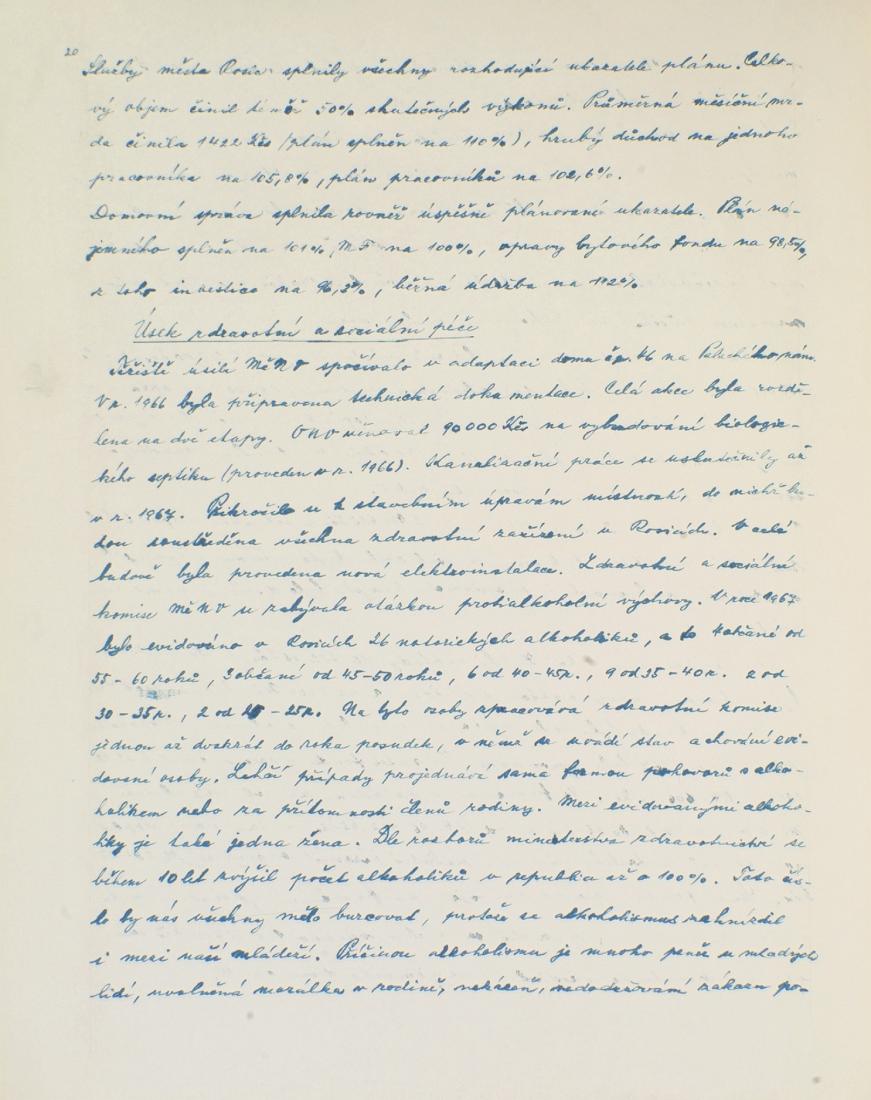 20
Služby města Rosic splnily všechny rozhodující ukazatele plánu. Celko-
vý objem činil téměř 50% skutečných výkonů. Průměrná měsíční mz-
da činila 1422 Kčs (plán splněn na 110%), hrubý důchod na jednoho
pracovníka na 105,8%, plán pracovníků na 102,6%.
Domovní správa splnila rovněž úspěšně plánované ukazatele. Plán ná-
jemného splněn na 101%, MF na 100%, opravy bytového fondu na 98,5%,
z toho investice na 96,3%, běžná údržba na 112%
Úsek zdravotní a sociální péče
Těžiště úsilí MěNV spočívalo v adaptaci domu čp. 46 na Palackého nám.
V r. 1966 byla připravena technická dokumentace. Celá akce byla rozdě-
lena na dvě etapy. ONV věnoval 90000 Kčs na vybudování biologic-
kého septiku (proveden v r. 1966). Kanalizační práce se uskutečnily až
v r. 1967. Přikročilo se k stavebním úpravám místností, do nichž bu-
dou soustředěna všechna zdravotní zařízení v Rosicích. V celé
budově byla provedena nová elektroinstalace. Zdravotní a sociální
komise MěNV se zabývala otázkou protialkoholní výchovy. V roce 1967
bylo evidováno v Rosicích 26 notorických alkoholiků, a to 4 občané od
55-60 roků, 3 občani od 45-50 roků, 6 od 40-45r., 9 od 35-40r. 2 od
30-35r., 2 od -25r. Na tyto osoby zpracovává zdravotní komise
jednou až dvakrát do roka posudek, v němž se uvádí stav a chování evi-
dované osoby. Lehčí případy projednává sama formou pohovorů s alko-
holikem nebo za přítomnosti členů rodiny. Mezi evidovanými alkoho-
liky je také jedna žena. Dle rozborů ministerstva zdravotnictví se
během 10 let zvýšil počet alkoholiků v republice až o 100%. Toto čís-
lo by nás všechny mělo burcovat, protože se alkoholismus zahnízdil
i mezi naší mládeží. Příčinou alkoholismu je mnoho peněz u mladých
lidí, uvolněná morálka v rodině, nekázeň, nedodržování zákazu po-